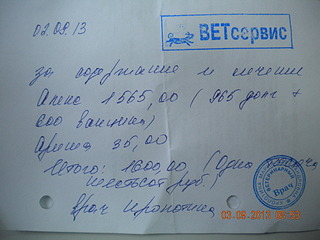 02.09.13
ВЕТсервис
за содержание и лечение
Алекс 1565,00 (965 долг +
600 вакцина)
Ариша 35,00
Итого: 1600,00 (Одна тысяча
шестьсот руб.)
Врач
ВЕТЕРИНАРНЫЙ
Врач